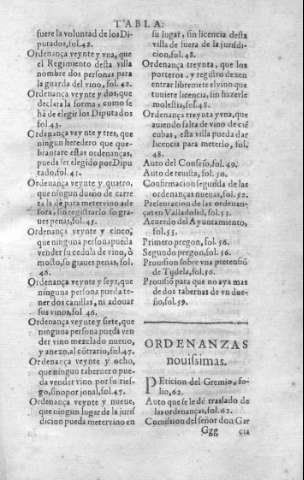 TABLA.
fuere la voluntad de los Di-
putados, fol. 42.
Ordenança veynte y vna, que
el Regimiento desta villa
nombre dos personas para
la guarda del vino, fol. 42.
Ordenança veynte y dos, que
declara la forma, como se
há de elegir los Diputados
fol. 43
Ordenança veynte y tres, que
ningun heredero que que-
brantare estas ordenanças,
pueda ser elegido por Dipu
tado, fol. 41.
Ordenança veynte y quatro,
que ningun dueño de carre-
ta la dè para meter vino afe
fora, sin registrarlo so gra-
ues penas, fol. 45.
Ordenança veynte y cinco,
que ninguna persona pueda
vender su cedula de vino, ò
mosto, so graues penas, fol.
46.
Ordenança veynte y seys, que
ninguna persona pueda te-
ner dos canillas, ni adouar
sus vinos, fol. 46.
Ordenança veynte y siete, que
ninguna persona pueda ven
der vino mezclado nueuo,
y anexo al cotrario, fol. 47.
Ordenança veynte y ocho,
que ningun tabernero pue-
da vender vino por su ries-
go, sino por jonal, fol. 47.
Ordenança veynte y nueue,
que ningun lugar de la juris
dicion pueda meter vino en
su lugar, sin licencia desta
villa de fuera de la jurisdi-
cion, fol. 48.
Ordenança treynta, que los
porteros, y registro dexen
entrar libremente el vino que
tuuiere licencia, sin hazerle
molestia, fol. 48.
Ordenança treynta y vna, que
auiendo falta de vino de cie
cubas, esta villa pueda dar
licencia para meterlo, fol.
48.
Auto del Consejo, fol. 49.
Auto de reuista, fol. 50.
Confirmacion segunda de las
ordenanças nueuas, fol. 52.
Presentacion de las ordenan-
ças en Valladolid, fol. 53.
Acuerdo del Ayuntamiento,
fol. 55.
Primero pregon, fol. 56.
Segundo pregon, fol. 56.
Prouision sobre vna pretensiõ
de Tudela, fol. 56.
Prouisiõ para que no aya mas
de dos tabernas de vn due-
ño, fol. 59.
ORDENANZAS
nouissimas.
Peticion del Gremio, fo-
lio, 62.
Auto que se le dè traslado de
las ordenanças, fol. 62.
Comission del señor don Gar
Ggg cia